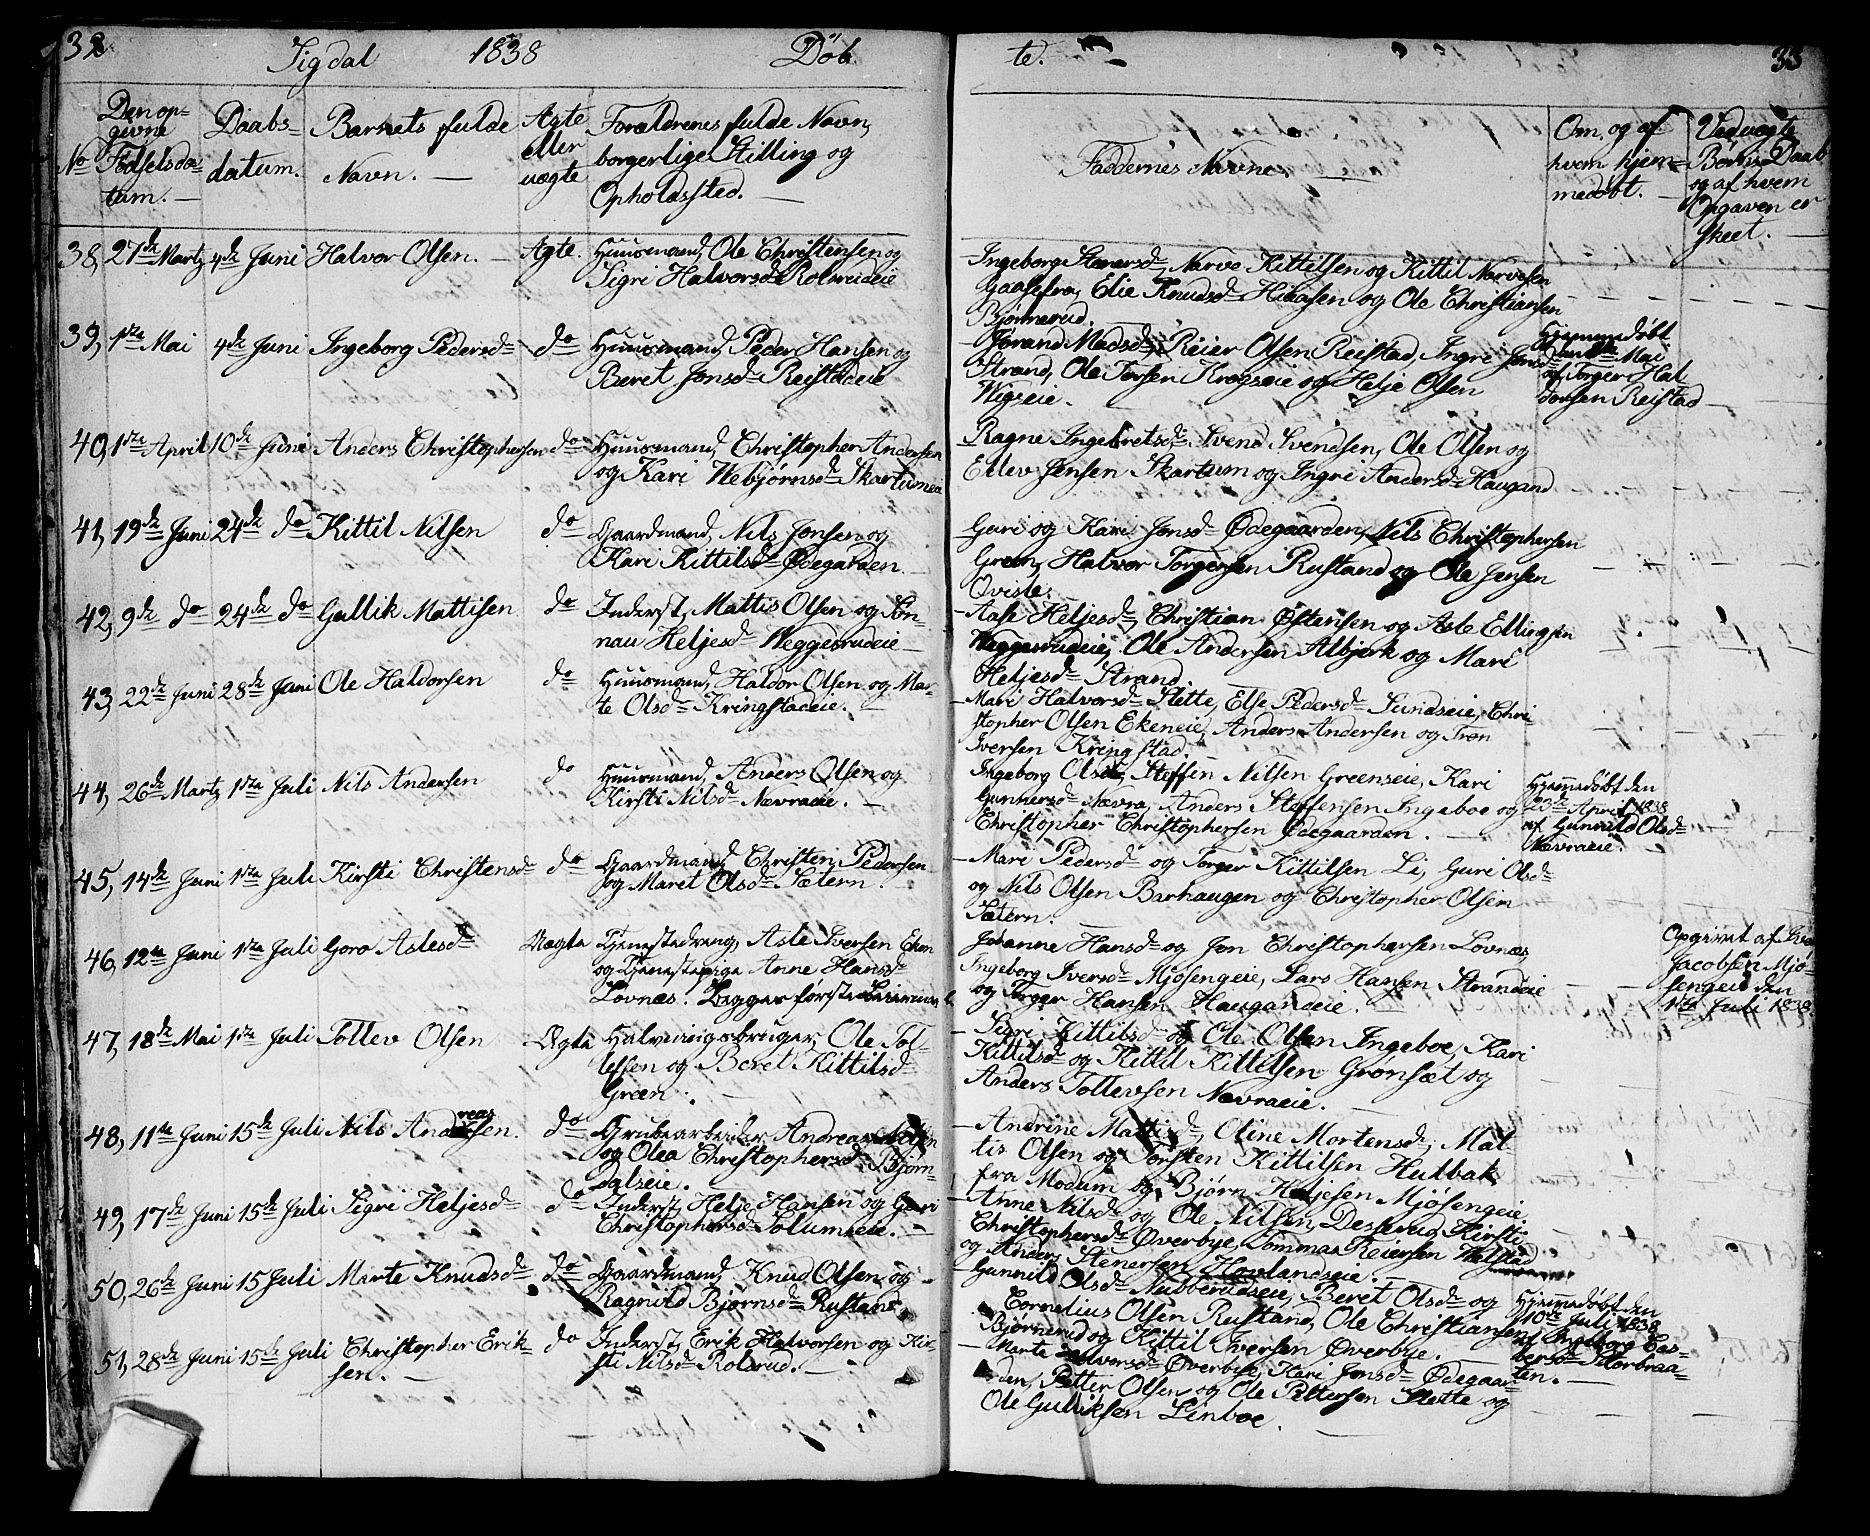 32
Sigdal 1838 Döb
te. 33
No
Den op-
givne
Fødselsda-
tum. —
Daabs-
datum.
Barnets fulde
Navn. —
Ægte
eller
uægte
Forældrenes fulde Navn,
borgerlige Stilling og
Opholdssted. —
Faddernes Navne. —
Om, og af
hvem hjem-
medøbt. —
Ved uægte
Børns Daab
og af hvem
Opgaven er
skeet. —
38, 27de Martz 4de Juni Halvor Olsen. — Ægte. Huusmand, Ole Christensen og
Sigri Halvorsd Rolsrudeie
Ingeborg Stenersd, Narve Kittilsen og Kittil Narvesen
Gaasefra, Elie Knudsd Hiaasen og Ole Christiansen
Bjørnerud.
39, 1ste Mai 4de Juni Ingeborg Pedersd do Huusmand, Peder Hansen og
Beret Jonsd Reistadeie
Jørand Madsd, Reier Olsen Reistad, Ingri Jonsd
Strand, Ole Torsen Krogseie og Helje Olsen
Wigseie.
Hjemmedøbt
Mai
af Torger Hal-
dorsen Reistad
40, 1ste April 10de Juni Anders Christophersen do Huusmand, Christopher Andersen
og Kari Webjørnsd Skartumeie
Ragne Ingebretsd, Svend Svendsen, Ole Olsen og
Ellev Jensen Skartum og Ingri Andersd Haugand
41, 19de Juni 24de do Kittil Nilsen do Gaardmand, Nils Jonsen og
Kari Kittilsd Ødegarden.
Guri og Kari Jonsd Ødegaarden, Nils Christophersen
Green, Halvor Torgersen Rustand og Ole Jensen
Qviste.
42, 9de do 24de do Gullik Mattisen do Inderst, Mattis Olsen og Søn-
nau Heljesd Weggesrudeie
Aase Heljesd, Christian Østensen og Asle Ellingsen
Weggesrudeie, Ole Andersen Albjerk og Mari
Heljesd Strand
43, 22de Juni 28de Juni Ole Haldorsen do Huusmand, Haldor Olsen og Mar-
te Olsd Kringstadeie. —
Mari Halvorsd Slette, Else Pedersd Sundseie, Chri-
stopher Olsen Ekeneie, Anders Andersen og Tron
Iversen Kringstad.
44, 26de Martz 1ste Juli Nils Andersen do Huusmand, Anders Olsen og
Kirsti Nilsd Nævraeie. —
Ingeborg Olsd, Steffen Nilsen Greenseie, Kari
Gunnersd Nævra, Anders Steffensen Ingeboe og
Christopher Christophersen Ødegaarden. —
Hjemmedøbt den
23de April 1838
af Gunnild Olsd
Nævraeie.
45, 14de Juni 1ste Juli Kirsti Christensd do Gaardmand, Christen Pedersen
og Maret Olsd Sætern.
Mari Pedersd og Torger Kittilsen Li, Guri Olsd
og Nils Olsen Barhaugen og Christopher Olsen
Sætern.
46, 12te Juni 1ste Juli Goro Aslesd Uægte Tjenestedreng, Asle Iversen Eken
og Tjenestepige Anne Hansd
Lovnæs. Begges første Leiermaal.
Johanne Hansd og Jon Christophersen Lovnæs
Ingeborg Iversd Mjøsengeie, Lars Hansen Strandeie
og Torger Hansen Haugandeie.
Opgivet af
Jacobsen Mjø-
sengeie den
1ste Juli 1838
47, 18de Mai 1ste Juli Tollev Olsen Ægte Halvningsbruger, Ole Tol-
lefsen og Beret Kittilsd
Green.
Sigri Kittilsd og Ole Olsen Ingeboe, Kari
Kittilsd og Kittil Kittelsen Grønsæt og
Anders Tollevsen Nævraeie.
48, 11te Juni 15de Juli Nils Andreassen. do Grubearbeider Andreas Nilsen
og Olea Christophersd Bjørn-
dalseie.
Andrine Mattisd, Oline Mortensd, Mat-
tis Olsen og Torsten Kittilsen Hulbak
fra Modum og Bjørn Heljesen Mjøsengeie
49, 17de Juni 15de Juli Sigri Heljesd do Inderst, Helje Hansen og Guri
Christophersd Solumseie. —
Anne Nilsd og Ole Nilsen Desserud, Kirsti
Christophersd Øverbye, Tommas Reiersen Walstad
og Anders Stenersen Hovlandseie. —
50, 26de Juni 15 Juli Marte Knudsd do Gaardmand, Knud Olsen og
Ragnild Bjørnsd Rustand.
Gunnild Olsd Nubberudseie, Beret Olsd og
Cornelius Olsen Rustand, Ole Christiansen
Bjørnerud og Kittil Iversen Øverbye.
Hjemmedøbt den
10de Juli 1838
af Ingeborg Es-
bersd Storbraa-
ten. —
51, 28de Juni 15de Juli Christopher Erik-
sen. —
do Inderst, Erik Halvorsen og Kir-
sti Nilsd Rolsrud. —
Marte Halvorsd Øverbye, Kari Jonsd Ødegaar-
den, Petter Olsen og Ole Pettersen Slette og
Ole Gulliksen Linboe.